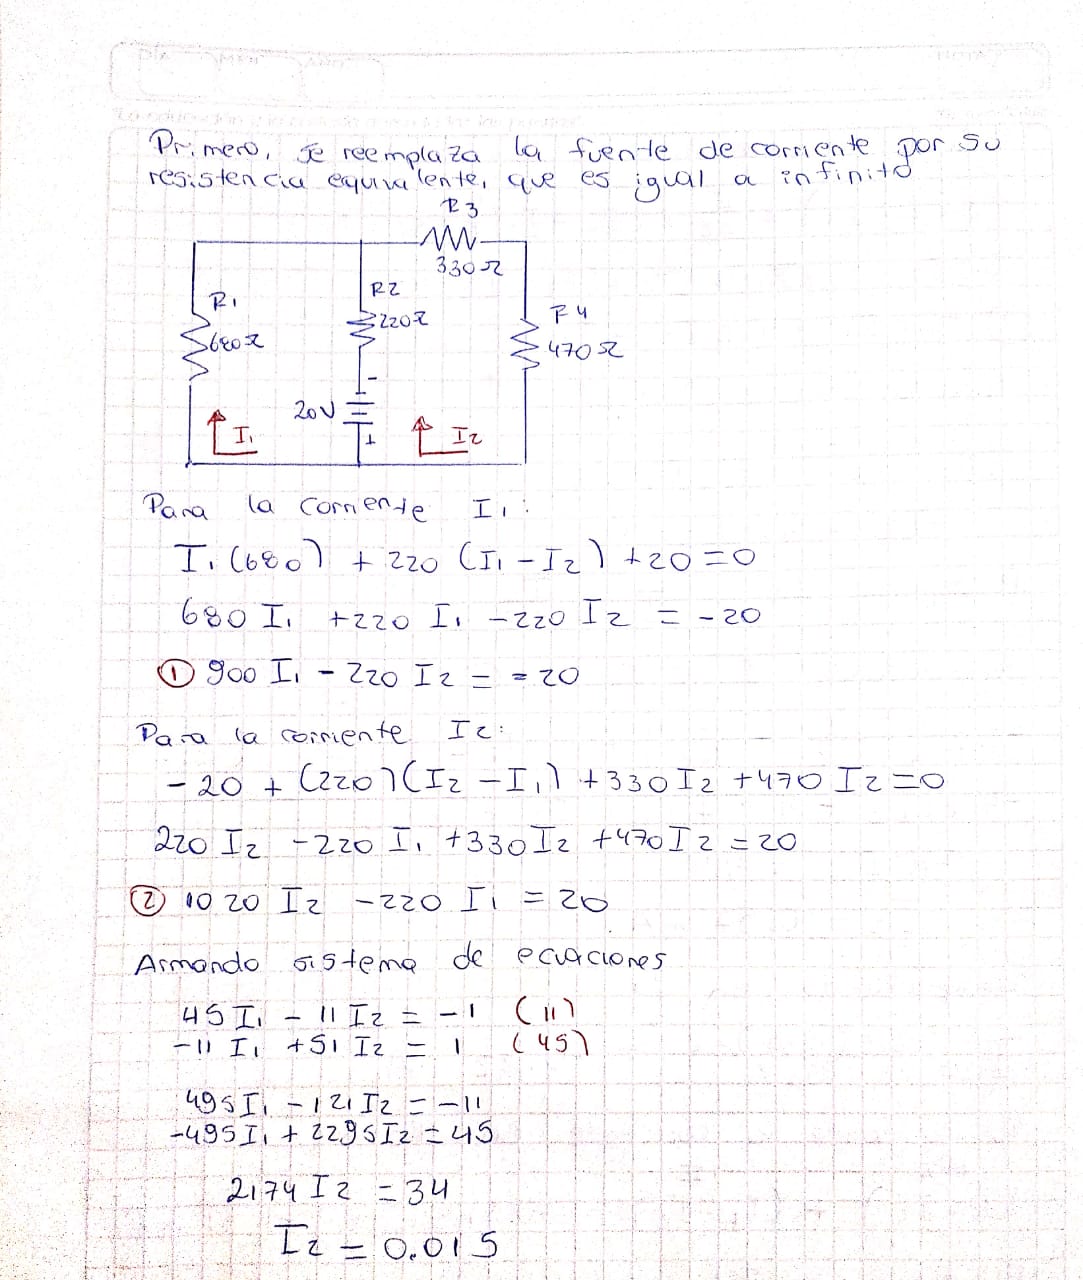 Primero, se reemplaza la fuente de corriente por su
resistencia equivalente, que es igual a infinito
R3
330Ω
R1
680Ω
R2
220Ω
R4
470Ω
-
20V
+
I1
I2
Para la corriente I1:
I1(680) + 220 (I1 - I2) + 20 = 0
680 I1 + 220 I1 - 220 I2 = -20
① 900 I1 - 220 I2 = = 20
Para la corriente I2:
- 20 + (220)(I2 - I1) + 330 I2 + 470 I2 = 0
220 I2 - 220 I1 + 330 I2 + 470 I2 = 20
② 1020 I2 - 220 I1 = 20
Armando sistema de ecuaciones
45 I1 - 11 I2 = -1 (11)
-11 I1 + 51 I2 = 1 (45)
495 I1 - 121 I2 = -11
-495 I1 + 2295 I2 = 45
2174 I2 = 34
I2 = 0.015